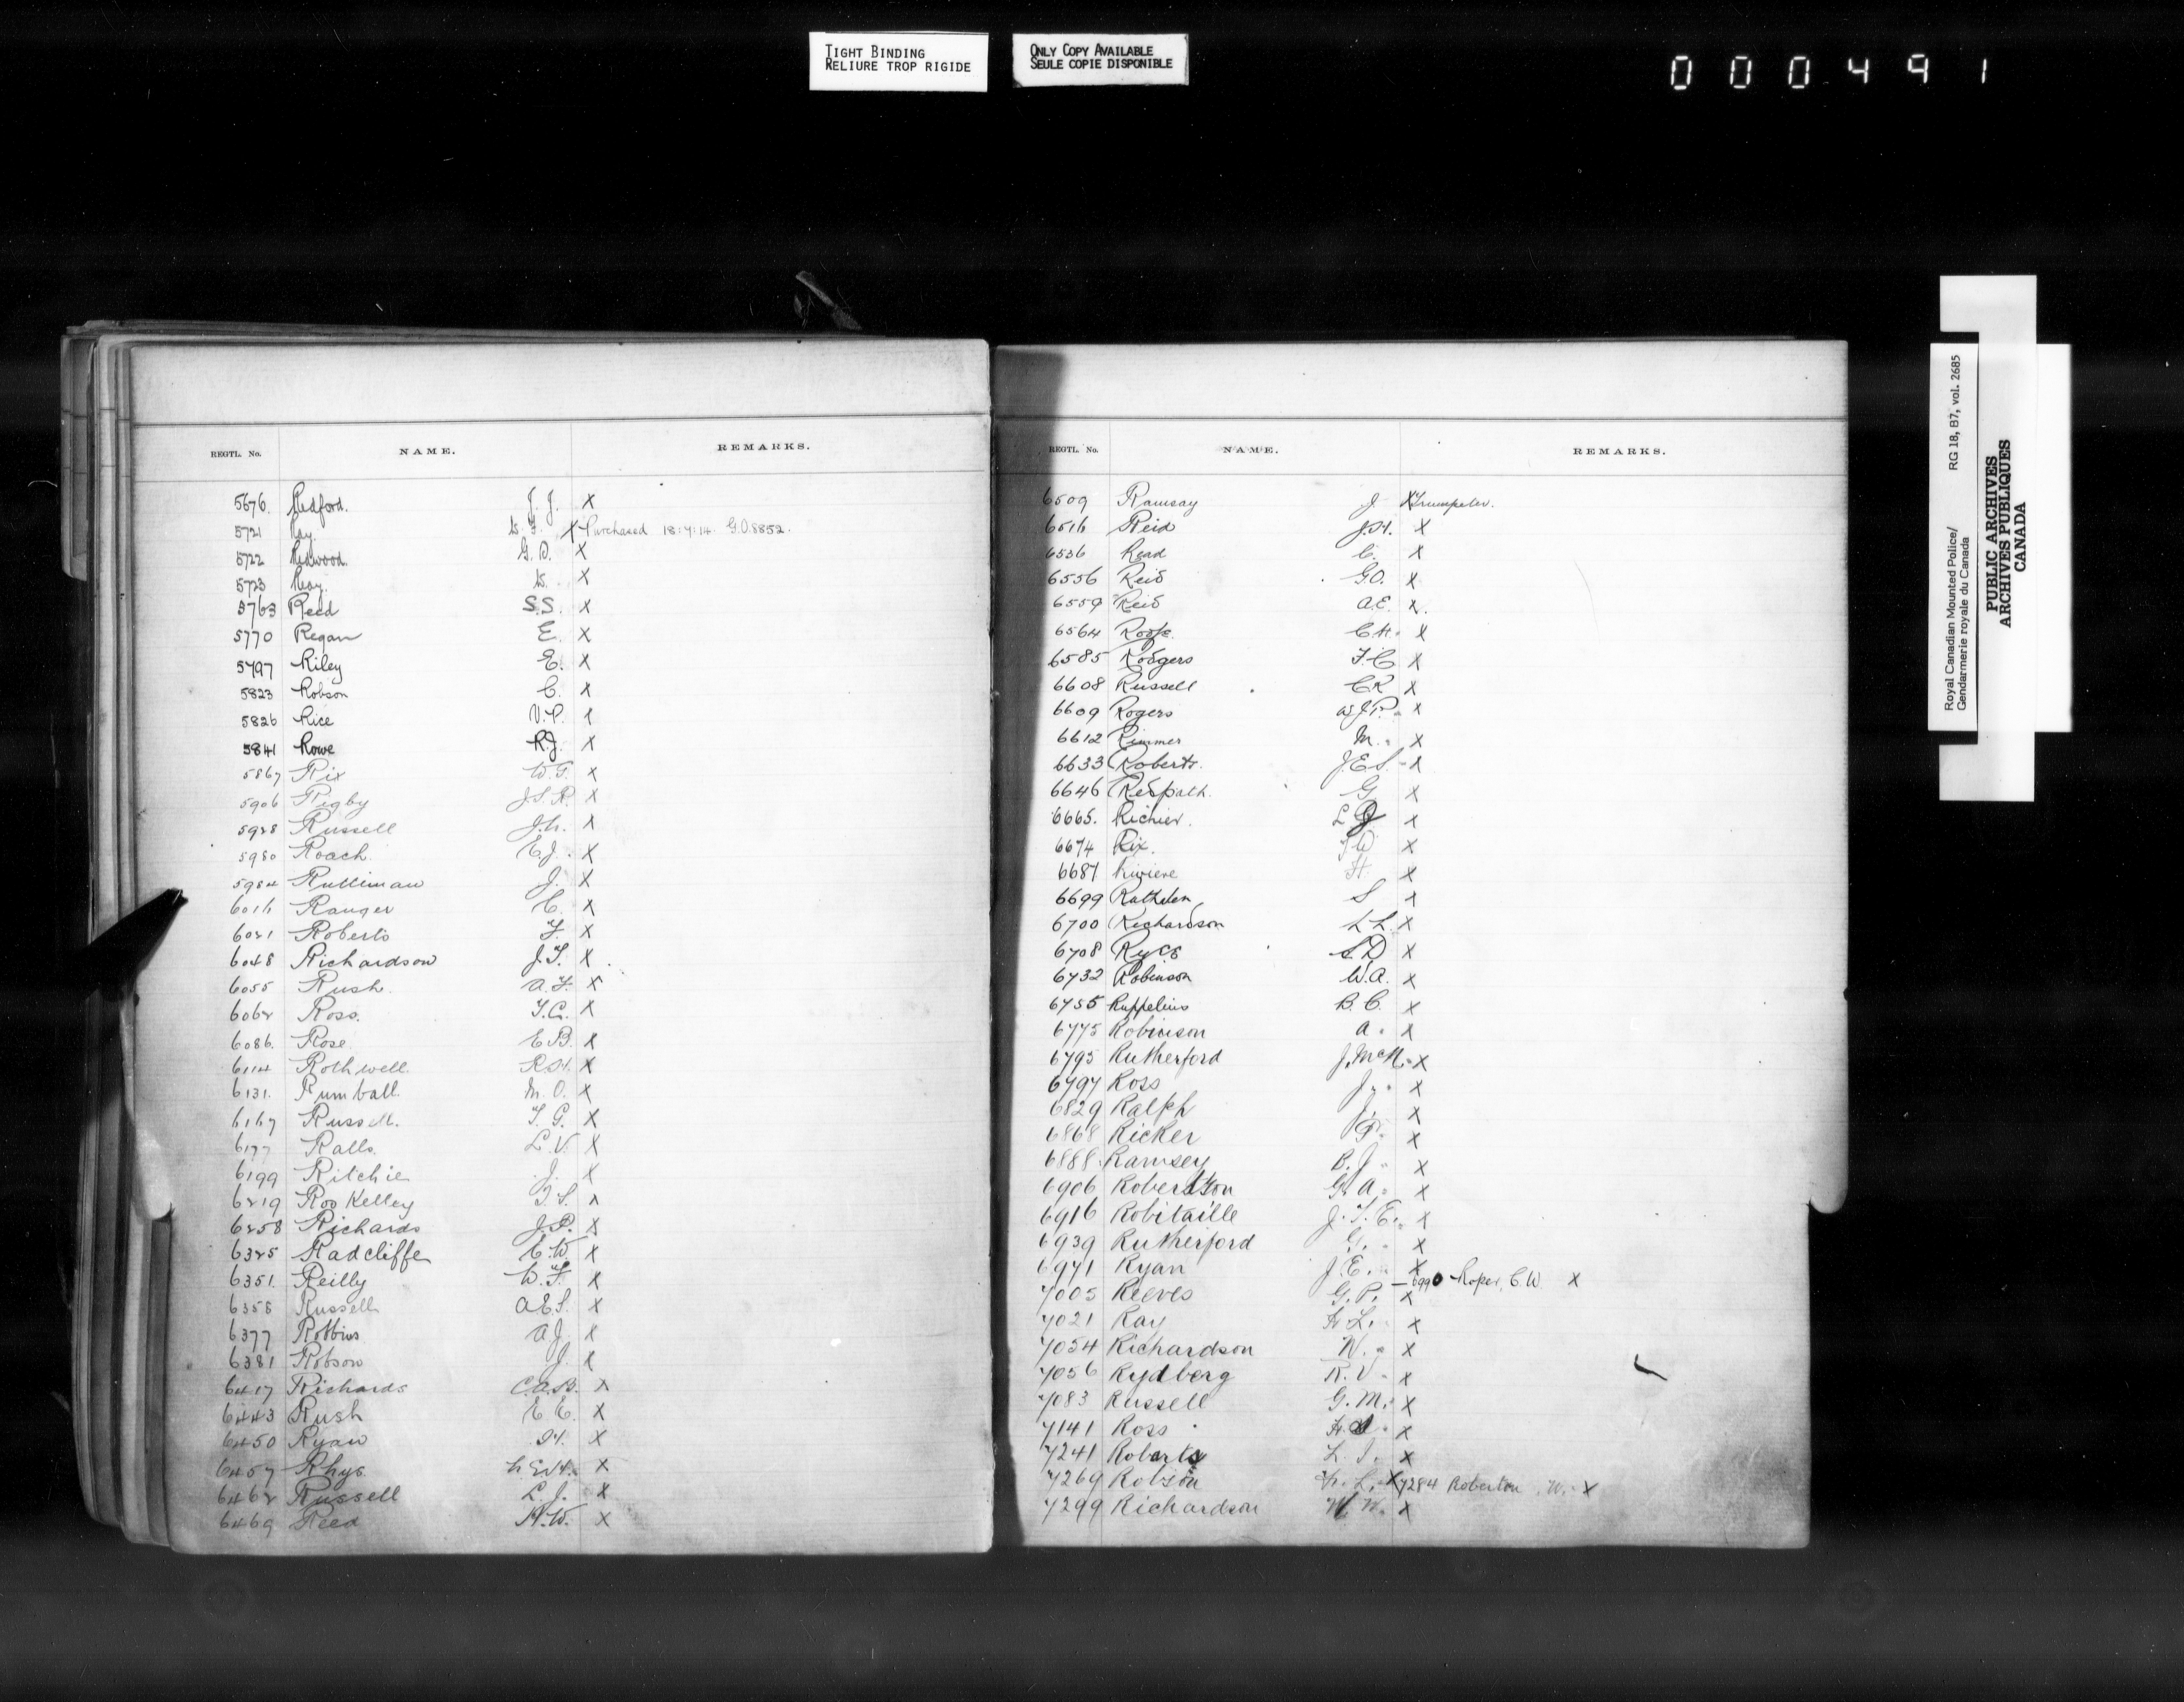 TIGHT BINDING
RELIURE TROP RIGIDE
ONLY COPY AVAILABLE
SEULE COPIE DISPONIBLE
000491
REGTL. No. NAME. REMARKS.
5676. Redford. J. J. X
5721 Ray. X Purchased 18:7:14. G.O.8852.
5722 Redwood. G. D. X
5723 Ray. X
5763 Reed S.S. X
5770 Regan E. X
5797 Riley E. X
5823 Robson C. X
5826 Rice V.P. X
5841 Rowe R.J. X
5867 Rix W.G. X
5906 Rigby J.S.R. X
5928 Russell J.h. X
5980 Roach. E.J. X
5984 Ruttiman J. X
6016 Ranger C. X
6021 Roberts F. X
6048 Richardson J.T. X
6055 Rush. A.F. X
6062 Ross. T.C. X
6086. Rose E.B. X
6114 Rothwell. R.H. X
6131. Rumball. M.O. X
6167 Russell. T.G. X
6177 Ralls. L.V. X
6199 Ritchie J. X
6219 Roskelley T.S. X
6258 Richards J.P. X
6325 Radcliffe C.W. X
6351. Reilly W.F. X
6358 Russell A.E.S. X
6377 Robbins A.J. X
6381 Robson J. X
6417 Richards C.A.B. X
6443 Rush E.E. X
6450 Ryan H. X
6457 Rhys. X
6462 Russell L.J. X
6469 Reed H.W. X
REGTL. No. NAME. REMARKS.
6509 Ramsay J. X Trumpeter.
6516 Reid J.H. X
6536 Read C. X
6556 Reid G.O. X
6559 Reid A.E. X.
6564 Roope. C.H. X
6585 Rodgers F.C X
6608 Russell C.R X
6609 Rogers W.J.P. X
6612 Rimmer M. X
6633 Roberts. J.E.S. X
6646 Redpath. G X
6665. Richier. L J X
6674 Rix. T W X
6687 Riviere H. X
6699 Rathven S X
6700 Richardson L.L. X
6708 Ryce S.D. X
6732 Robinson W.A. X
6755 Ruppelius B.C. X
6775 Robinson A. X
6795 Rutherford J.McN. X
6797 Ross J. X
6829 Ralph J. X
6868 Ricker P. X
6888. Ramsey B.J. X
6906 Robertson G.A. X
6916 Robitaille J.T.E. X
6939 Rutherford G. X
6971 Ryan J.E. X
— 6990 Roper, C.W X
7005 Reeves G.P. X
7021 Ray H.L. X
7054 Richardson W. X
7056 Rydberg R.V. X
7083 Russell G.M. X
7141 Ross X
7241 Roberts L.J. X
7269 Robson H.L. X 7284 Roberton W. X
7299 Richardson W.W. X
Royal Canadian Mounted Police/ RG 18, B7, vol. 2685
Gendarmerie royale du Canada
PUBLIC ARCHIVES
ARCHIVES PUBLIQUES
CANADA